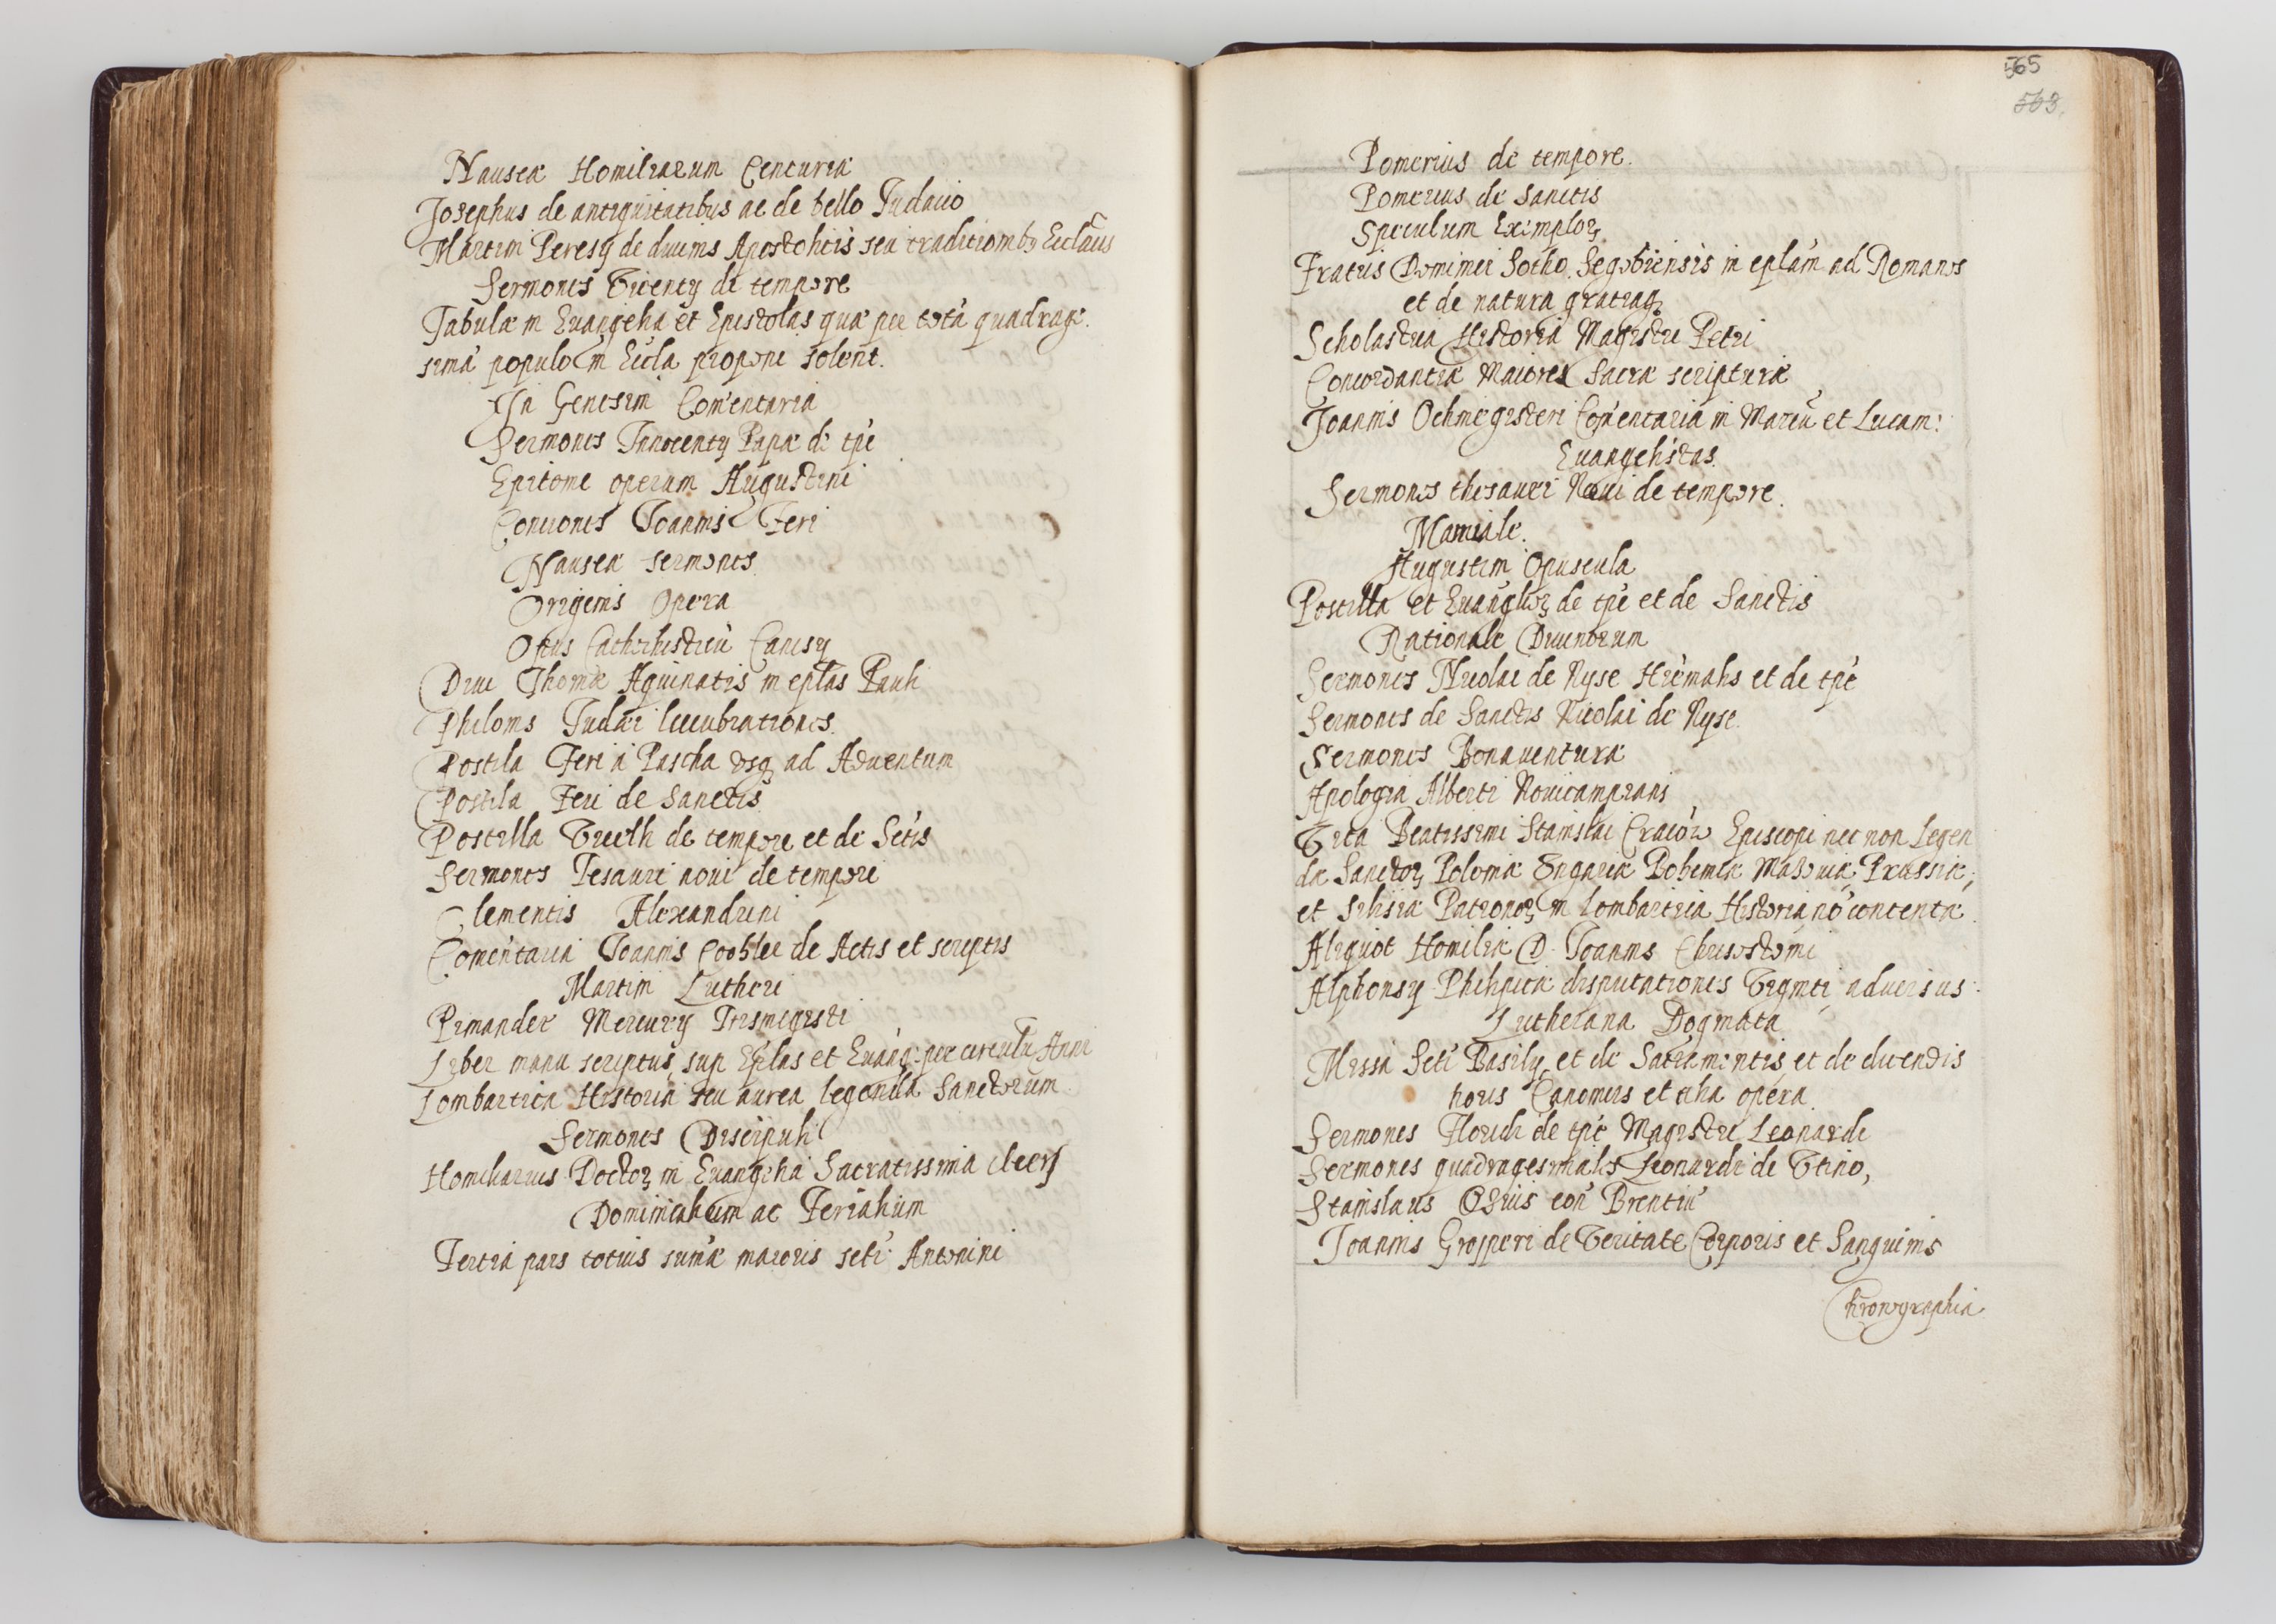 Nauseæ Homiliarum Centuria
Josephus de antiquitatibus ac de bello Judaico
Martini Peresÿ de diuinis Apostolicis seu traditionibꝫ Eccl̃aus
Sermones Vicentÿ de tempore
Tabulæ in Euangelia et Epistolas quæ per totã quadrage.
simã populo in Eccla proponi solent.
In Genesim Comẽntaria
Sermones Innocentÿ Papæ de tp̃e
Epitome operum Augustini
Conciones Joannis Feri
Nauseæ sermones.
Origenis Opera
Opus Cathechisticũ Canisÿ
Diui Thomæ Aquinatis in ep̃las Pauli
Philonis Judæi lucubrationes.
Postila Feri à Pascha vsqꝫ ad Aduentum
Postila Feri de Sanctis
Postilla Vuelh de tempore et de Sctis
Sermones Tesauri noui de tempore
Clementis Alexandrini
Comẽntaria Joannis Cochlei de Actis et scriptis
Martini Lutheri
Pimander Mercurÿ Trismegisti
Liber manu scriptus, sup Ep̃las et Euang: per circulũ Anni
Lombartica Historia seu aurea legenda Sanctorum
Sermones Discipuli
Homiliarius Doctoꝝ in Euangelia Sacratissima
Dominicalium ac Ferialium
Tertia pars totius sum̃æ maioris scti Antonini
565
563.
Pomerius de tempore.
Pomerius de Sanctis
Speculum Exemploꝝ
Fratris Dominici Sotho. Segobiensis in epl̃am ad Romanos
et de natura gratiaqꝫ
Scholastica Historia Magistri Petri
Concordantiæ Maiores Sacræ scripturæ
Joannis Ochmegisteri Com̃entaria in Marcũ et Lucam:
Euangelistas.
Sermones thesauri Noui de tempore.
Mamiale.
Augustini Opuscula
Postilla et Euangelioꝝ de tp̃e et de Sanctis
Rationale Diuinorum
Sermones Nicolai de Nyse Hiemalis et de tp̃e
Sermones de Sanctis Nicolai de Nyse.
Sermones Bonauenturæ
Apologia Alberti Nouicampiani
Vita Beatissimi Stanislai Cracoũ Episcopi nec non Legen
dæ Sanctoꝝ Poloniæ Vngariæ Bohemiæ Masouiæ, Prussiæ,
et Silisiæ Patronoꝝ in Lombartica Historia nõ contentæ.
Aliquot Homiliæ D. Joannis Chrisostomi
Alphonsÿ Philipicæ disputationes Viginti aduersus
Lutherana Dogmata
Missa Scti Basilÿ, et de Sacramentis et de dicendis
horis Canonicis et alia opera.
Sermones Floridi de tp̃e Magistri Leonardi
Sermones quadragesimales Leonardi de Vtino,
Stanislaus Osius con̄ Brentiũ
Joannis Gropperi de Veritate Corporis et Sanguinis
Chronographia